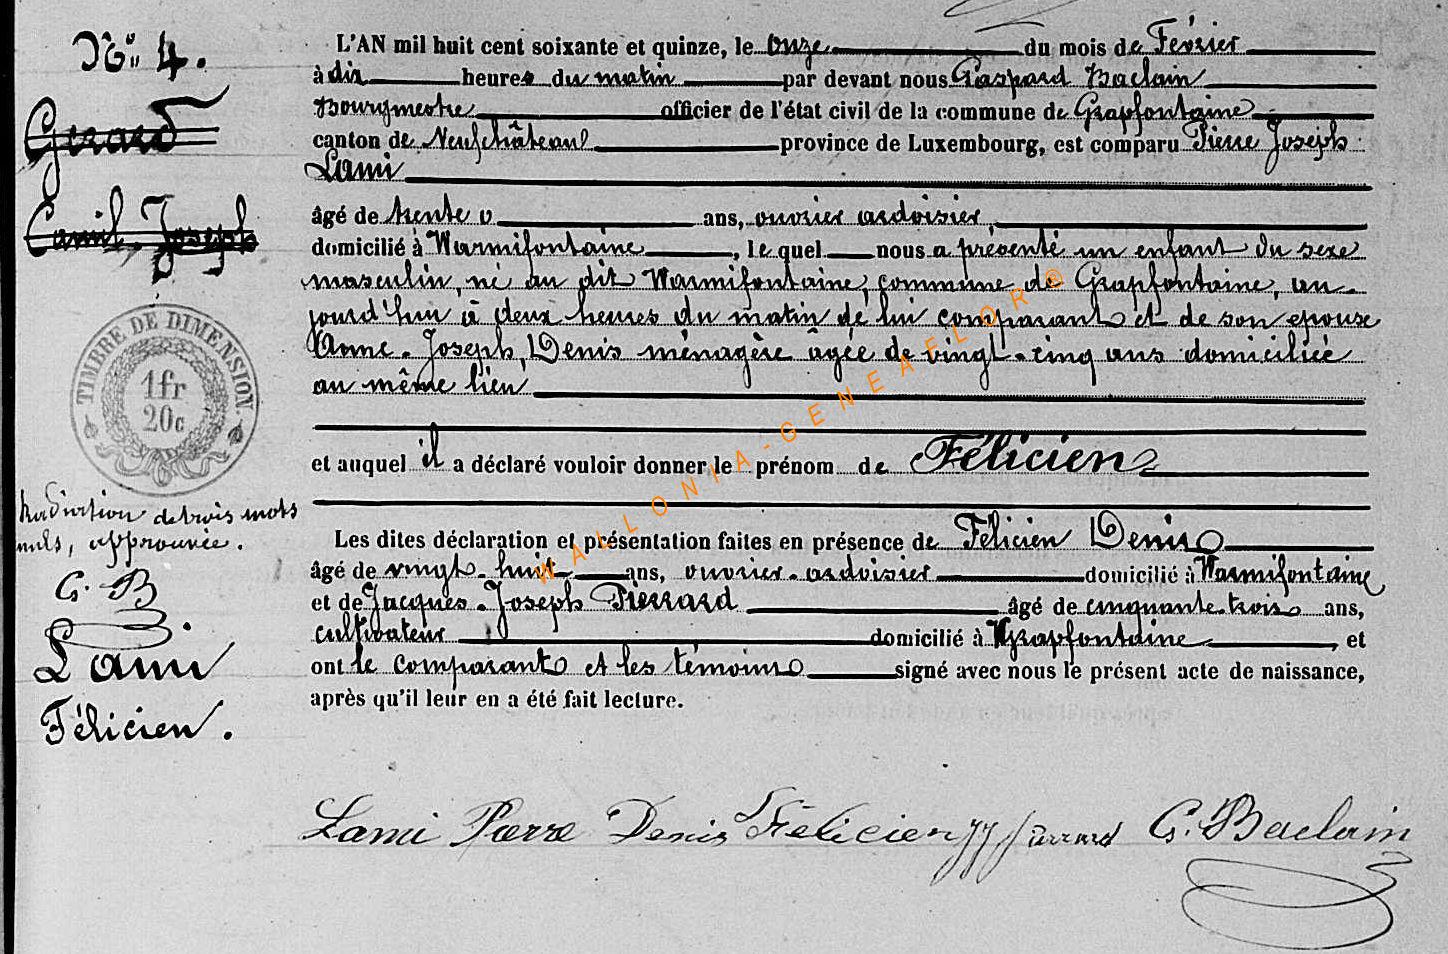 N° 4.
Gerard
Camil-Joseph
TIMBRE DE DIMENSION.
1fr
20c
Radiation de trois mots
nuls, approuvée.
G. B
Lami
Félicien.
L'AN mil huit cent soixante et quinze, le onze du mois de Février
à dix heures du matin par devant nous Gaspard Baclain
Bourgmestre officier de l'état civil de la commune de Grapfontaine
canton de Neufchâteau province de Luxembourg, est comparu Pierre Joseph
Lami
âgé de trente ans, ouvrier ardoisier
domicilié à Warmifontaine, le quel nous a présenté un enfant du sexe
masculin, né au dit Warmifontaine, commune de Grapfontaine, au-
jourd'hui à deux heures du matin de lui comparant et de son epouse
Anne-Joseph Denis ménagère âgée de vingt-cinq ans domiciliée
au même lieu
et auquel il a déclaré vouloir donner le prénom de Félicien
Les dites déclaration et présentation faites en présence de Félicien Denis
âgé de vingt-huit ans, ouvrier-ardoisier domicilié à Warmifontaine
et de Jacques-Joseph Pierrard âgé de cinquante-trois ans,
cultivateur domicilié à Grapfontaine, et
ont le comparant et les témoins signé avec nous le présent acte de naissance,
après qu'il leur en a été fait lecture.
Lami Pierre Denis Félicien JJ Pierrard G. Baclain
WALLONIA-GENEAFLOR®